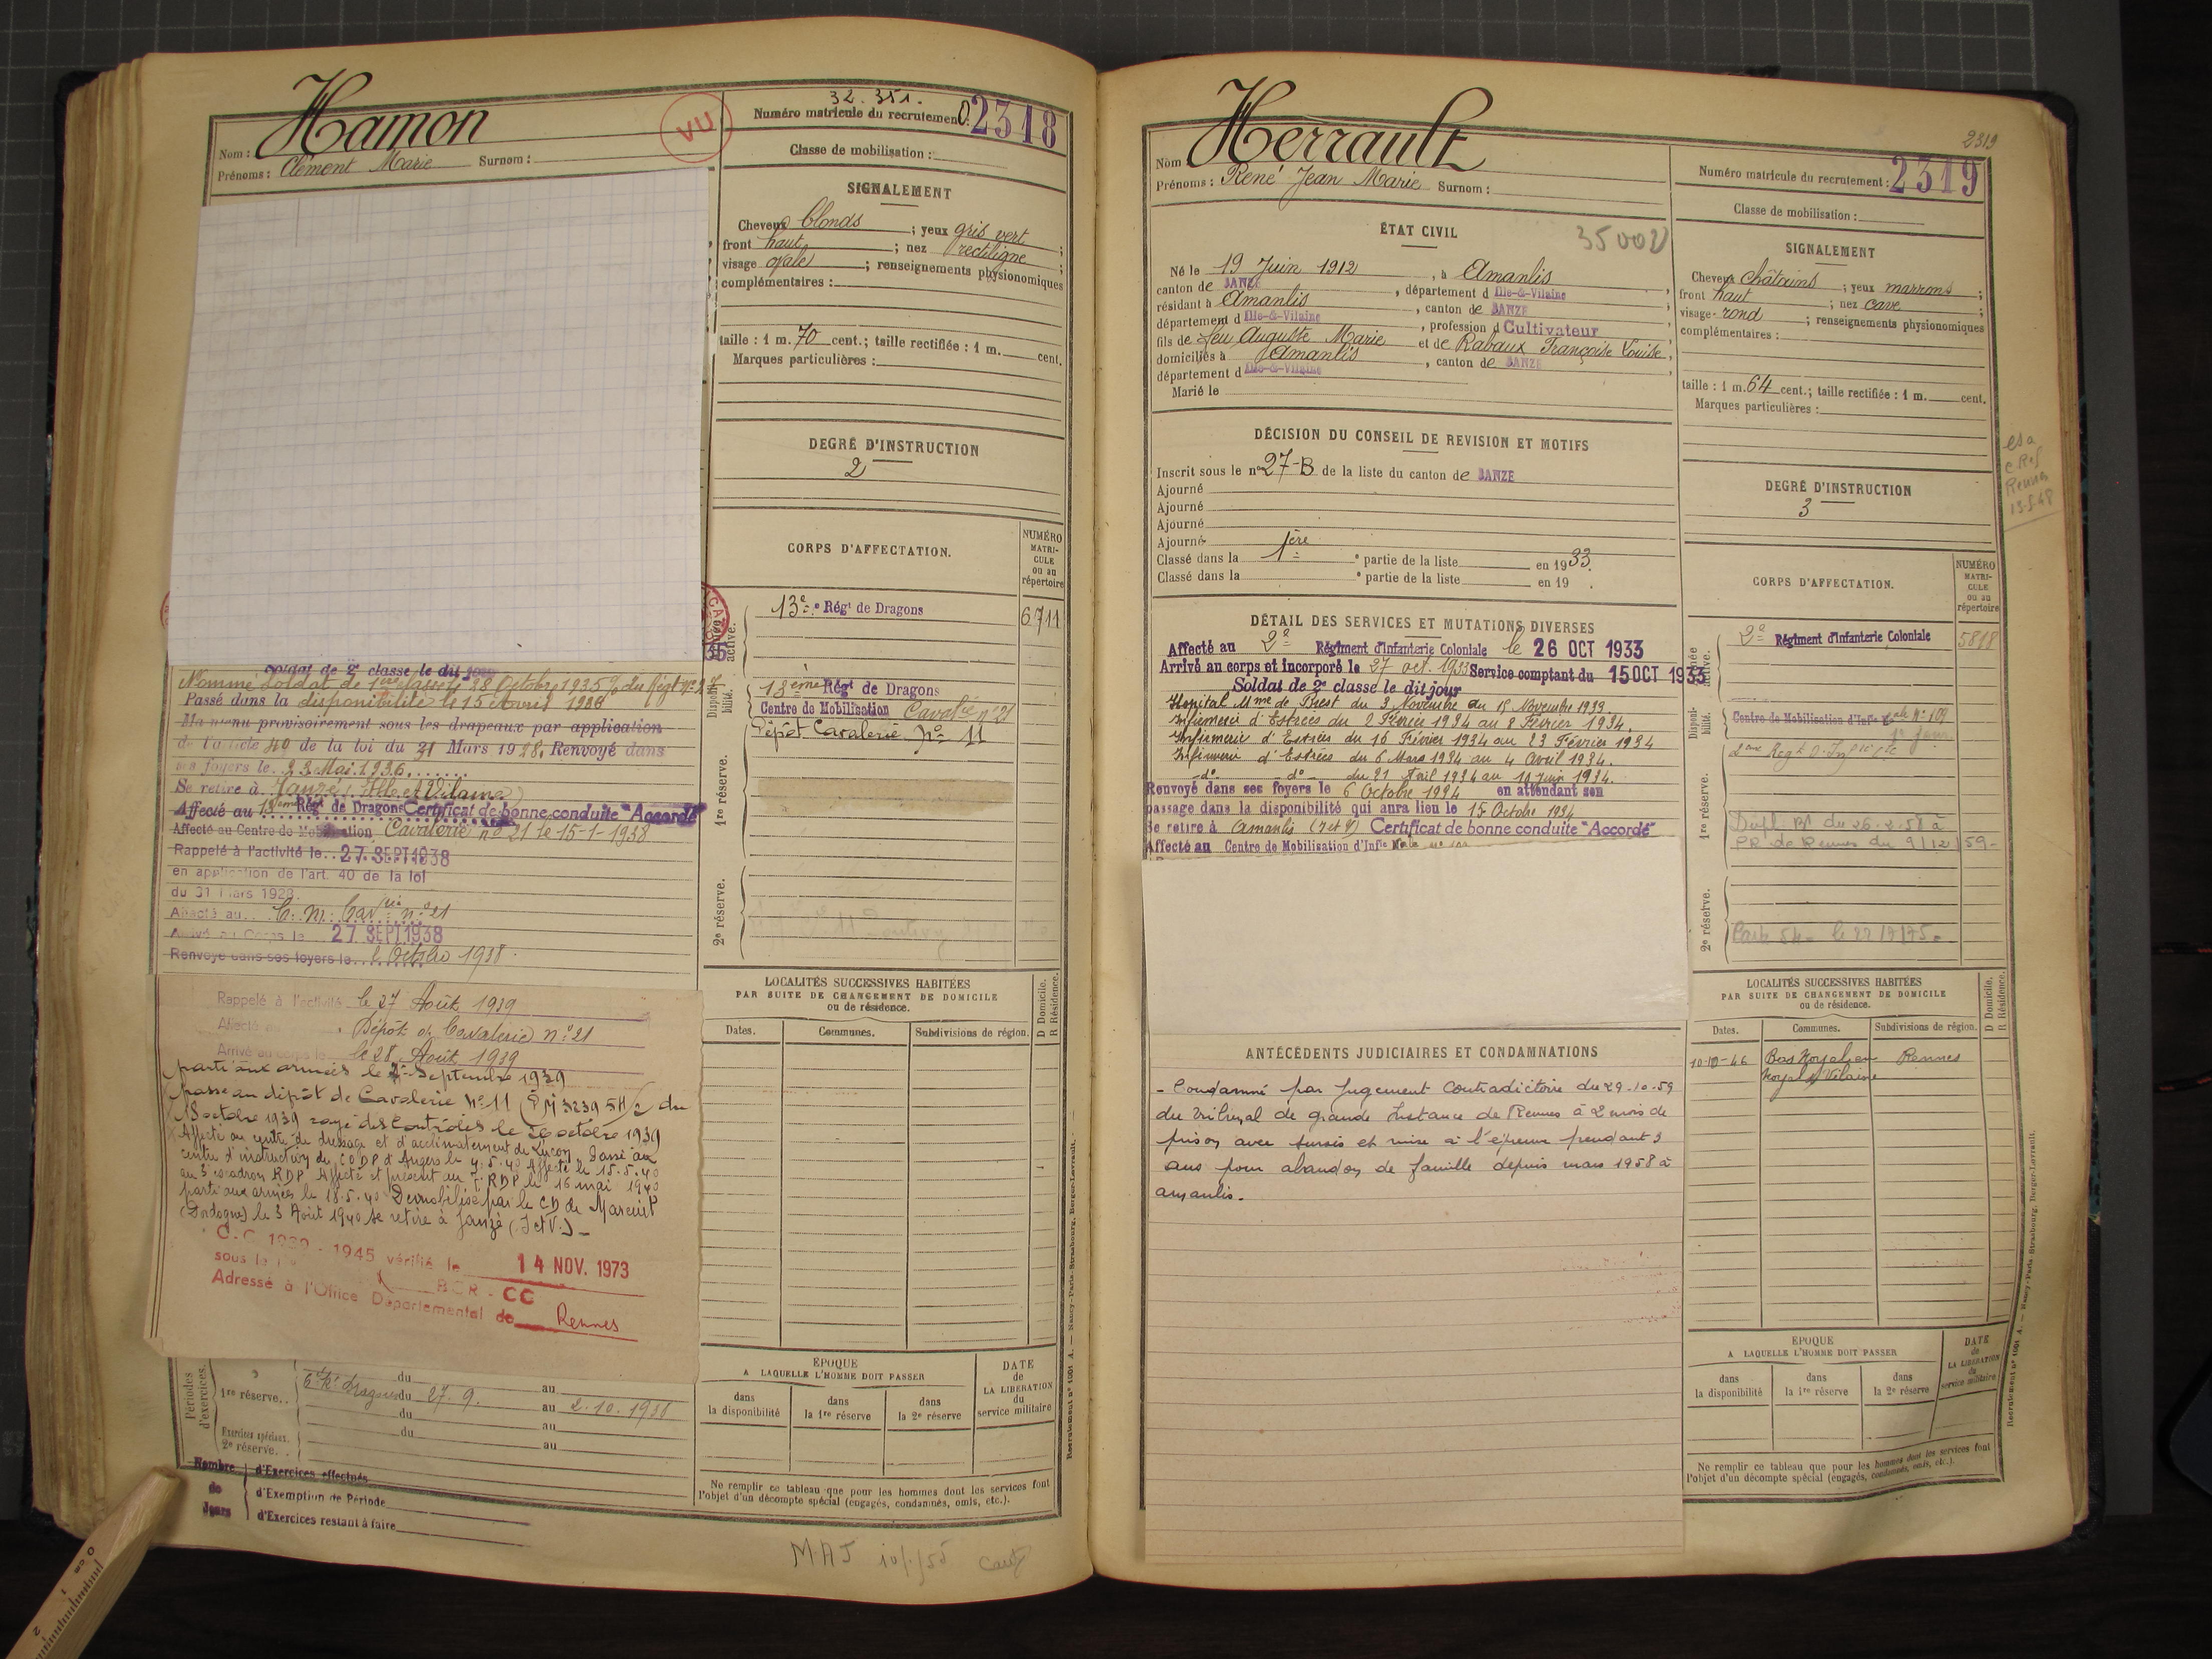 Hamon
32.351.
Numéro matricule du recrutement: 02318
VU
Nom :
Prénoms : Clément Marie Surnom :
Classe de mobilisation :
SIGNALEMENT
Cheveux blonds ; yeux gris vert ;
front haut ; nez rectiligne ;
visage ovale ; renseignements physionomiques
complémentaires :
taille : 1 m. 70 cent.; taille rectifiée : 1 m. cent.
Marques particulières :
DEGRÉ D'INSTRUCTION
2
CORPS D'AFFECTATION.
NUMÉRO
MATRI-
CULE
ou au
répertoire
13e Régt de Dragons 6711
active.
Disponi-
bilité.
13ème Régt de Dragons
Centre de Mobilisation Cavalie n° 21
Dépôt Cavalerie No 11
1re réserve.
2e réserve.
soldat de 2e classe le dit jour
Nommé Soldat de 1ère classe le 28 Octobre 1935
Passé dans la disponibilité le 15 avril 1936
Maintenu provisoirement sous les drapeaux par application
de l'article 40 de la loi du 31 Mars 1928. Renvoyé dans
ses foyers le 23 Mai 1936
Se retire à Janzé, Ille et Vilaine
Affecté au 13ème Régt de Dragons Certificat de bonne conduite "Accordé"
Affecté au Centre de Mobilisation Cavalerie n° 21 le 15-1-1938
Rappelé à l'activité le 27 SEPT 1938
en application de l'art. 40 de la loi
du 31 Mars 1928.
Affecté au C. M. Cavie n° 21
Arrivé au Corps le 27 SEPT 1938
Renvoyé dans ses foyers le Octobre 1938.
Rappelé à l'activité le 27 Août 1939
Affecté Dépôt de Cavalerie n° 21
Arrivé au corps le le 28 Août 1939
parti aux armées le 2 Septembre 1939
passe au dépôt de Cavalerie No 11 du
18 octobre 1939 rayé des Contrôles le 26 octobre 1939
Affecté au centre de dressage et d'acclimatement de Luçon Passé au
centre d'instruction du CODP d'Angers le 4.5.40 Affecté le 15.5.40
au 3e escadron RDP Affecté et présent au RDP le 16 mai 1940
parti aux armées le 18.5.40 Démobilisé par le CD de Mareuil
(Dordogne) le 3 Août 1940 se retire à Janzé (I et V.) -
C.C 1939 - 1945 vérifié le 14 NOV. 1973
sous le n°
BCR - CC
Adressé à l'Office Départemental de Rennes
LOCALITÉS SUCCESSIVES HABITÉES
PAR SUITE DE CHANGEMENT DE DOMICILE
ou de résidence.
D Domicile.
R Résidence.
Dates. Communes. Subdivisions de région.
Périodes
d'exercices.
1re réserve. .
du au
6e Rt Dragons du 27.9. au 2.10.1938
du au
Exercices spéciaux.
2e réserve. . .
du au
Nombre
de
Jours
d'Exercices effectués
d'Exemption de Période
d'Exercices restant à faire
ÉPOQUE
A LAQUELLE L'HOMME DOIT PASSER
dans
la disponibilité
dans
la 1re réserve
dans
la 2e réserve
DATE
de
LA LIBÉRATION
du
service militaire
Ne remplir ce tableau que pour les hommes dont les services font
l'objet d'un décompte spécial (engagés, condamnés, omis, etc.).
Recrutement n° 1001 A. — Nancy-Paris-Strasbourg, Berger-Levrault.
Herrault
2319
Nom
Prénoms : René Jean Marie Surnom :
Numéro matricule du recrutement : 2319
Classe de mobilisation :
ÉTAT CIVIL
Né le 19 Juin 1912, à Amanlis
canton de JANZE, département d Ille-&-Vilaine,
résidant à Amanlis, canton de JANZE
département d Ille-&-Vilaine, profession d Cultivateur,
fils de feu Auguste Marie et de Rabaux Françoise Louise,
domiciliés à Amanlis, canton de JANZE
département d Ille-&-Vilaine
Marié le
SIGNALEMENT
Cheveux châtains ; yeux marrons ;
front haut ; nez cave ;
visage rond ; renseignements physionomiques
complémentaires :
taille : 1 m. 64 cent.; taille rectifiée : 1 m. cent.
Marques particulières :
DEGRÉ D'INSTRUCTION
3
Rennes
DÉCISION DU CONSEIL DE REVISION ET MOTIFS
Inscrit sous le n° 27-B de la liste du canton de JANZE
Ajourné
Ajourné
Ajourné
Ajourné
Classé dans la 1ère e partie de la liste en 1933.
Classé dans la e partie de la liste en 19 .
DÉTAIL DES SERVICES ET MUTATIONS DIVERSES
Affecté au 2e Régiment d'Infanterie Coloniale le 26 OCT 1933
Arrivé au corps et incorporé le 27 oct. 1933 Service comptant du 15 OCT 1933
Soldat de 2e classe le dit jour
Hôpital Mme de Brest du 3 Novembre au 15 Novembre 1933.
Infirmerie d'Estrées du 2 Février 1934 au 8 Février 1934.
Infirmerie d'Estrées du 16 Février 1934 au 23 Février 1934
Infirmerie d'Estrées du 6 Mars 1934 au 4 Avril 1934.
-do- -do- du 21 Avril 1934 au 10 Juin 1934.
Renvoyé dans ses foyers le 6 Octobre 1934 en attendant son
passage dans la disponibilité qui aura lieu le 15 Octobre 1934
Se retire à Amanlis (I et V) Certificat de bonne conduite "Accordé"
Affecté au Centre de Mobilisation d'Infie
CORPS D'AFFECTATION.
NUMÉRO
MATRI-
CULE
ou au
répertoire
2e Régiment d'Infanterie Coloniale 5818
active.
Disponi-
bilité.
Centre de Mobilisation d'Infie Cale N° 109
1re réserve.
Dupl. BI du 26.2.58 à
PR de Rennes du 9/12/59-
2e réserve.
ANTÉCÉDENTS JUDICIAIRES ET CONDAMNATIONS
- Condamné par Jugement Contradictoire du 29.10.59
du tribunal de grande Instance de Rennes à 2 mois de
prison avec sursis et mise à l'épreuve pendant 3
ans pour abandon de famille depuis mars 1958 à
amanlis.
LOCALITÉS SUCCESSIVES HABITÉES
PAR SUITE DE CHANGEMENT DE DOMICILE
ou de résidence.
D Domicile.
R Résidence.
Dates. Communes. Subdivisions de région.
10-10-46 Noyal s/ Vilaine Rennes
ÉPOQUE
A LAQUELLE L'HOMME DOIT PASSER
dans
la disponibilité
dans
la 1re réserve
dans
la 2e réserve
DATE
de
LA LIBÉRATION
du
service militaire
Ne remplir ce tableau que pour les hommes dont les services font
l'objet d'un décompte spécial (engagés, condamnés, omis, etc.).
Recrutement n° 1001 A. — Nancy-Paris-Strasbourg, Berger-Levrault.
MAJ
0 cm 1 2